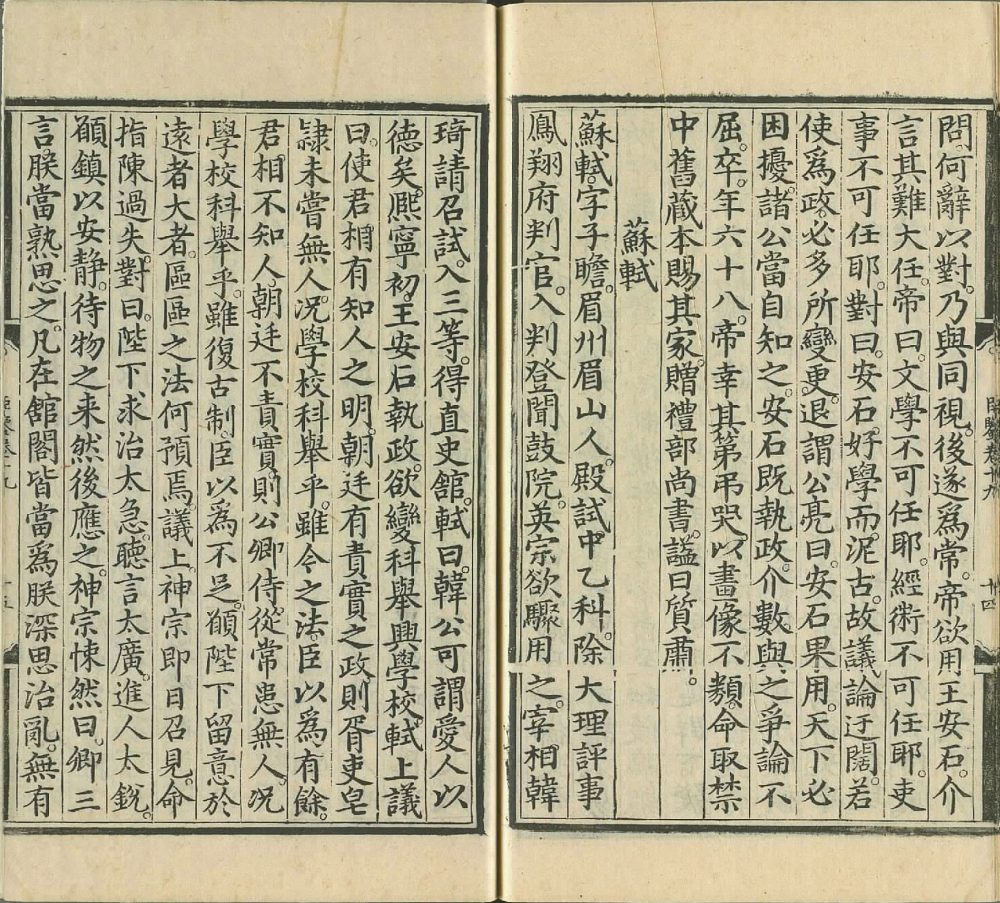 問。何辭以對。乃與同視。後遂爲常。帝欲用王安石。介
言其難大任。帝曰。文學不可任耶。經術不可任耶。吏
事不可任耶。對曰。安石。好學而。泥古。故議論迂闊。若
使爲政。必多所變更。退謂公亮曰。安石果用。天下必
困擾。諸公當自知之。安石既執政。介數與之爭論不
屈。卒。年六十八。帝幸其第弔哭。以畫像不類。命取禁
中舊藏本賜其家。贈禮部尚書。謚曰質肅。
蘇軾
蘇軾。字子瞻。眉州眉山人。殿試中乙科。除大理評事
鳳翔府判官。入判登聞鼓院。英宗欲驟用之。宰相韓
琦請召試。入三等。得直史舘。軾曰。韓公可謂愛人以
德矣。熈寧初。王安石執政。欲變科舉興學校。軾上議
曰。使君相有知人之明。朝廷有責實之政則胥吏皂
隷未嘗無人。况學校科舉乎。雖令之法。臣以爲有餘。
君相不知人。朝廷不責實。則公卿侍從常患無人。况
學校科舉乎。雖復古制。臣以爲不足。願陛下留意於
遠者大者。區區之法何預焉。議上。神宗即日召見。命
指陳過失。對曰。陛下求治太急。聽言太廣。進人太銳。
願鎮以安静。待物之来然後應之。神宗悚然曰。卿三
言。朕當熟思之。凡在舘閣皆當爲朕深思治亂。無有